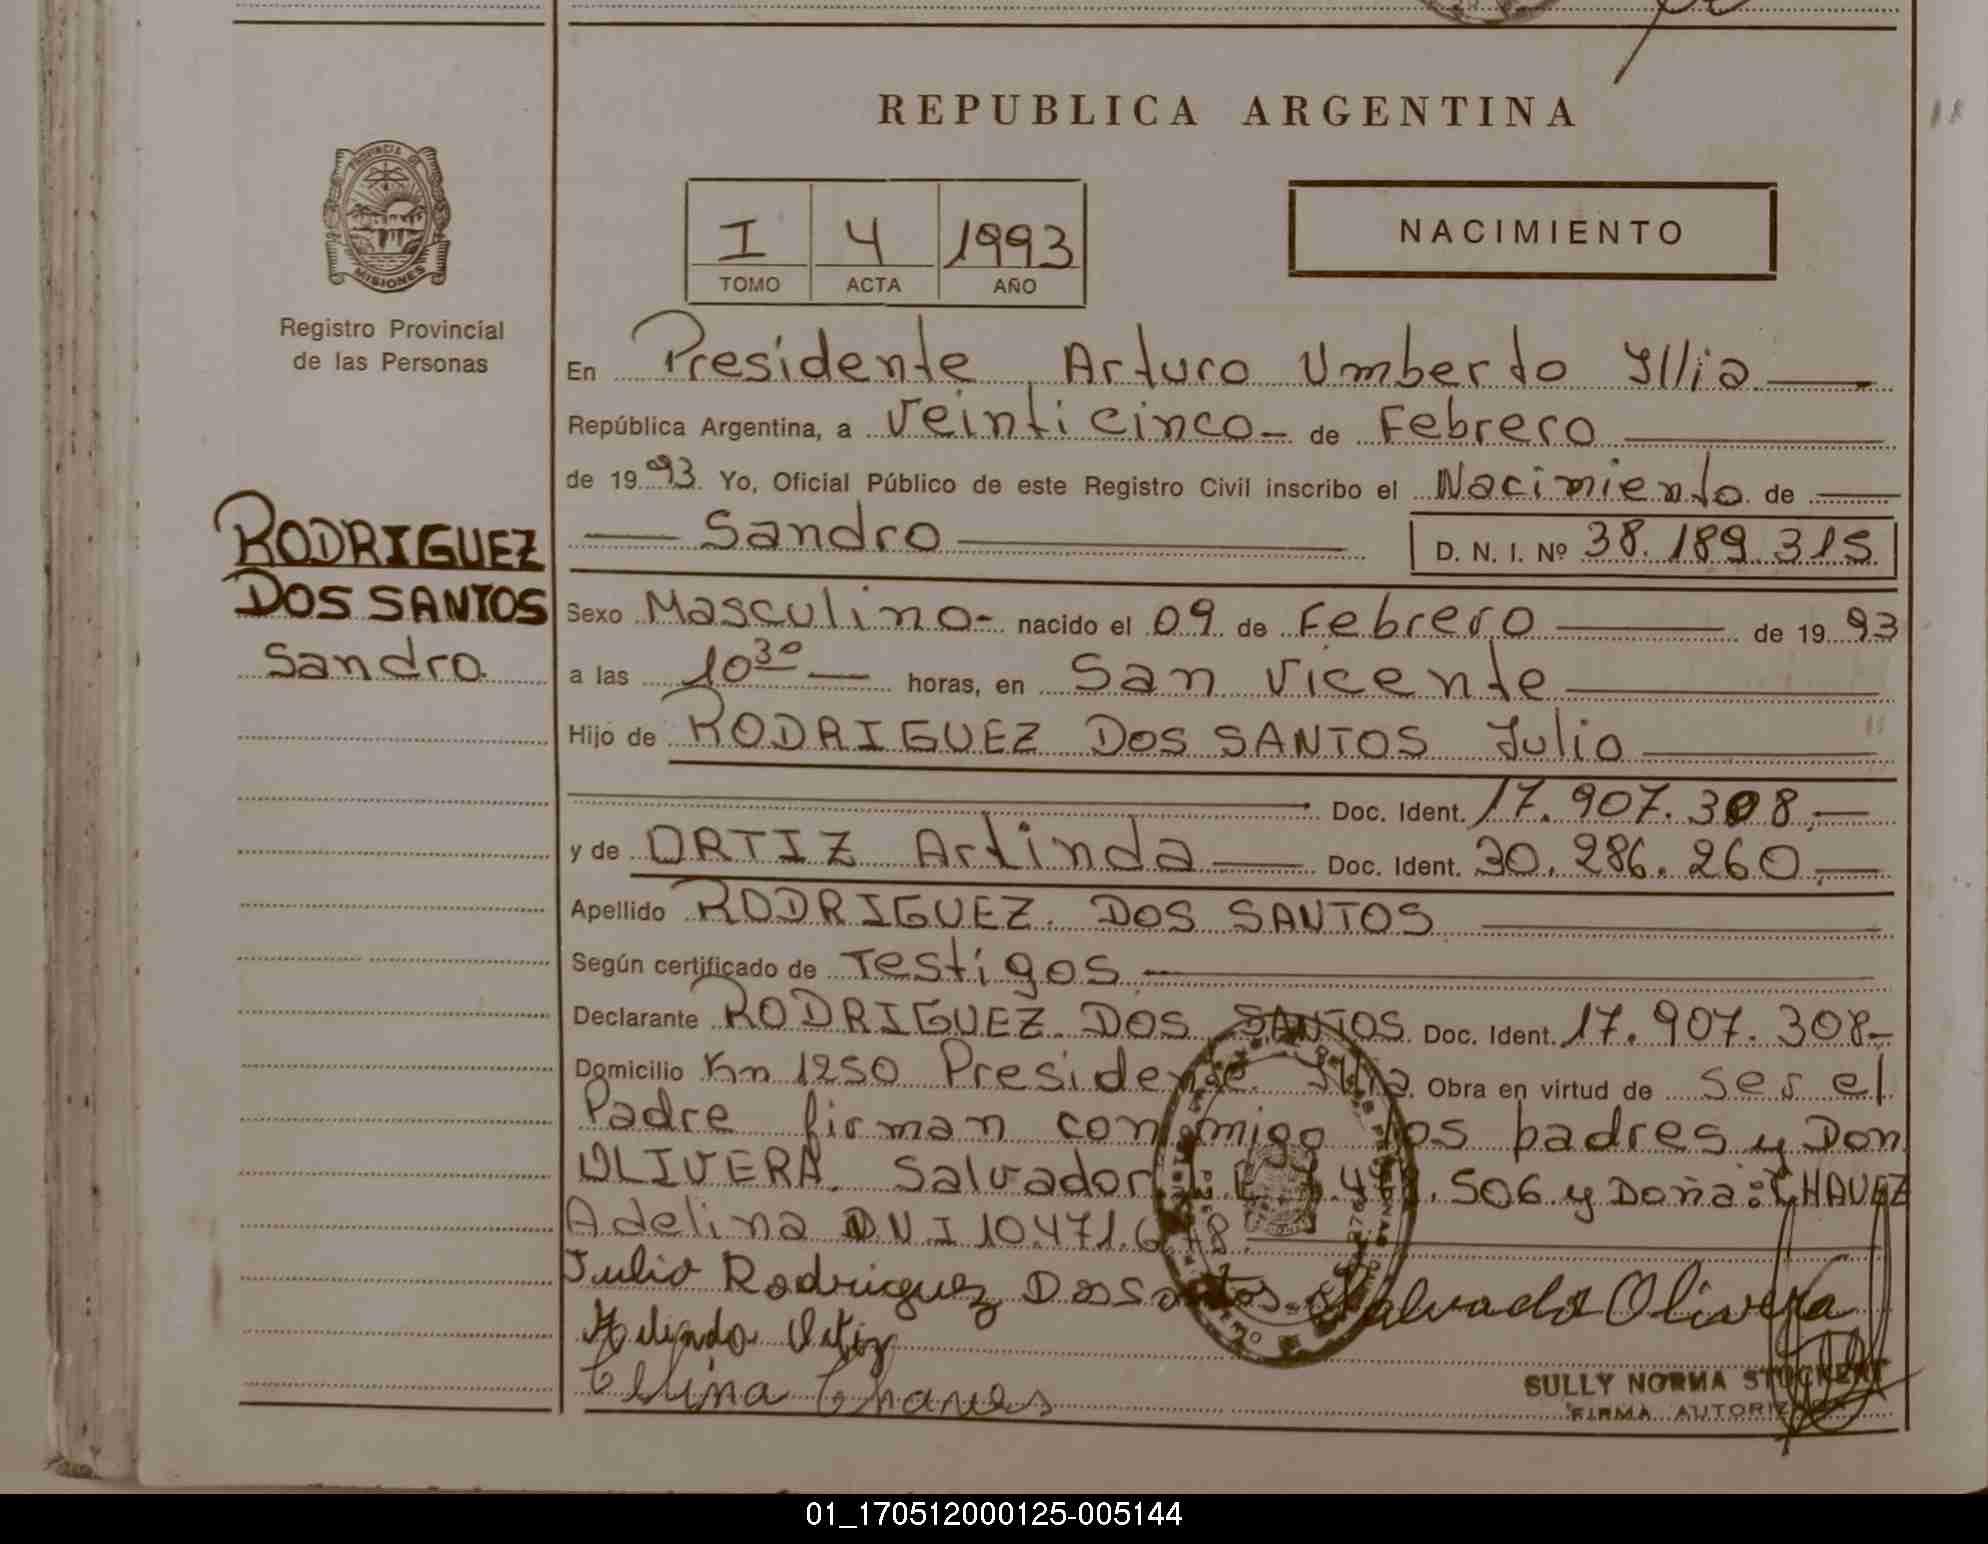 REPUBLICA ARGENTINA
PROVINCIA DE
MISIONES
Registro Provincial
de las Personas
I 4 1993
TOMO ACTA AÑO
NACIMIENTO
En Presidente Arturo Umberto Illia
República Argentina, a veinticinco - de Febrero
de 1993. Yo, Oficial Público de este Registro Civil inscribo el Nacimiento de
Sandro D. N. I. Nº 38.189.315
RODRIGUEZ
DOS SANTOS
Sandro
Sexo Masculino - nacido el 09 de Febrero de 1993
a las 10 30 horas, en San Vicente
Hijo de RODRIGUEZ DOS SANTOS Julio
Doc. Ident. 17.907.308.-
y de ORTIZ Arlinda Doc. Ident. 30.286.260.-
Apellido RODRIGUEZ DOS SANTOS
Según certificado de Testigos
Declarante RODRIGUEZ DOS SANTOS Doc. Ident. 17.907.308-
Domicilio Km 1250 Presidente Illia Obra en virtud de ser el
Padre firman conmigo los padres y Don
OLIVERA Salvador 506 y Doña: CHAVEZ
Adelina DNI 10.471.678.
Julio Rodriguez Dos Santos Salvador Olivera
Arlindo Ortiz
Chaves
SULLY NORMA STOCKERT
FIRMA AUTORIZADA
01_170512000125-005144